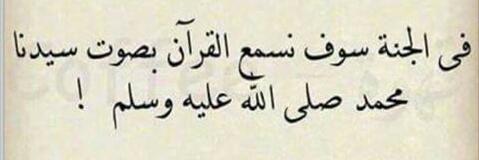 في الجنة سوف نسمع القرآن بصوت سيدنا
محمد صلى الله عليه وسلم !